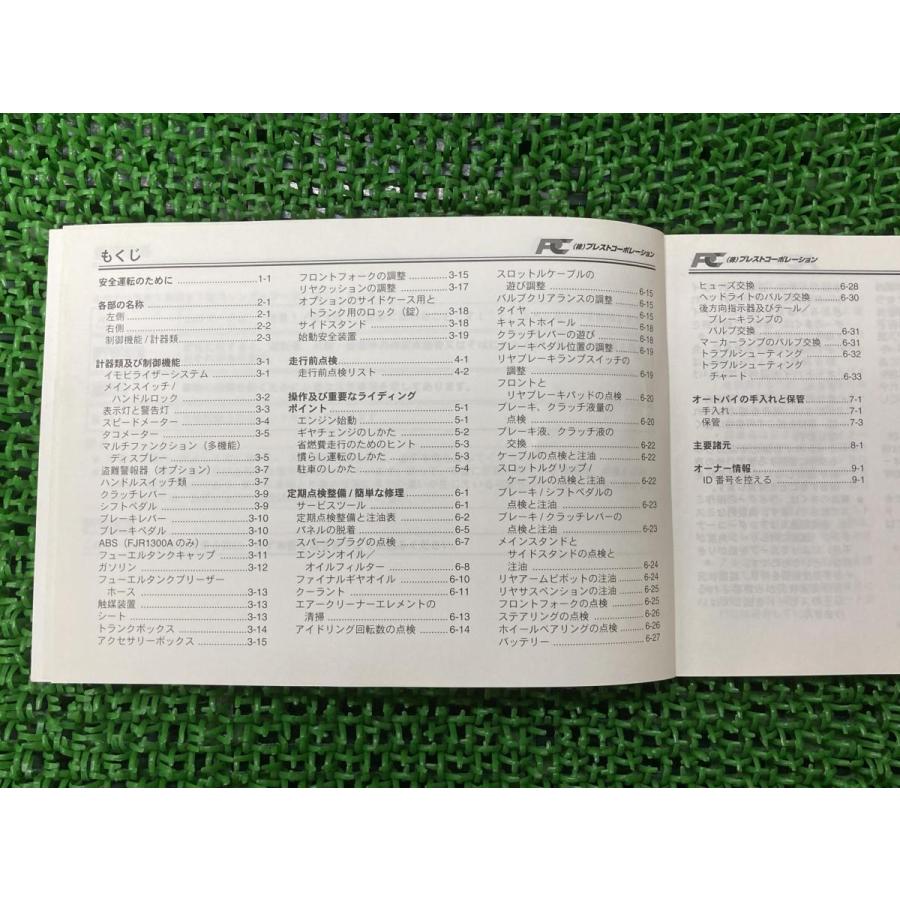 もくじ
PC (株)プレストコーポレーション
安全運転のために ........ 1-1
各部の名称 ........ 2-1
左側 ........ 2-1
右側 ........ 2-2
制御機能/計器類 ........ 2-3
計器類及び制御機能 ........ 3-1
イモビライザーシステム ........ 3-1
メインスイッチ/
ハンドルロック ........ 3-2
表示灯と警告灯 ........ 3-3
スピードメーター ........ 3-4
タコメーター ........ 3-5
マルチファンクション（多機能）
ディスプレー ........ 3-5
盗難警報器（オプション） ........ 3-7
ハンドルスイッチ類 ........ 3-7
クラッチレバー ........ 3-9
シフトペダル ........ 3-9
ブレーキレバー ........ 3-10
ブレーキペダル ........ 3-10
ABS（FJR1300Aのみ） ........ 3-10
フューエルタンクキャップ ........ 3-11
ガソリン ........ 3-12
フューエルタンクブリーザー
ホース ........ 3-13
触媒装置 ........ 3-13
シート ........ 3-13
トランクボックス ........ 3-14
アクセサリーボックス ........ 3-15
フロントフォークの調整 ........ 3-15
リヤクションの調整 ........ 3-17
オプションのサイドケース用と
トランク用のロック（錠） ........ 3-18
サイドスタンド ........ 3-18
始動安全装置 ........ 3-19
走行前点検 ........ 4-1
走行前点検リスト ........ 4-2
操作及び重要なライディング
ポイント ........ 5-1
エンジン始動 ........ 5-1
ギヤチェンジのしかた ........ 5-2
省燃費走行のためのヒント ........ 5-3
慣らし運転のしかた ........ 5-3
駐車のしかた ........ 5-4
定期点検整備/簡単な修理 ........ 6-1
サービスツール ........ 6-1
定期点検整備と注油表 ........ 6-2
パネルの脱着 ........ 6-5
スパークプラグの点検 ........ 6-7
エンジンオイル／
オイルフィルター ........ 6-8
ファイナルギヤオイル ........ 6-10
クーラント ........ 6-11
エアークリーナーエレメントの
清掃 ........ 6-13
アイドリング回転数の点検 ........ 6-14
スロットルケーブルの
遊び調整 ........ 6-15
バルブクリアランスの調整 ........ 6-15
タイヤ ........ 6-15
キャストホイール ........ 6-18
クラッチレバーの遊び ........ 6-18
ブレーキペダル位置の調整 ........ 6-19
リヤブレーキランプスイッチの
調整 ........ 6-19
フロントと
リヤブレーキパッドの点検 ........ 6-20
ブレーキ、クラッチ液量の
点検 ........ 6-20
ブレーキ液、クラッチ液の
交換 ........ 6-22
ケーブルの点検と注油 ........ 6-22
スロットルグリップ/
ケーブルの点検と注油 ........ 6-22
ブレーキ/シフトペダルの
点検と注油 ........ 6-23
ブレーキ/クラッチレバーの
点検と注油 ........ 6-23
メインスタンドと
サイドスタンドの点検と
注油 ........ 6-24
リヤアームピボットの注油 ........ 6-24
リヤサスペンションの注油 ........ 6-25
フロントフォークの点検 ........ 6-25
ステアリングの点検 ........ 6-26
ホイールベアリングの点検 ........ 6-26
バッテリー ........ 6-27
PC (株)プレストコーポレーション
ヒューズ交換 ........ 6-28
ヘッドライトのバルブ交換 ........ 6-30
後方向指示器及びテール／
ブレーキランプの
バルブ交換 ........ 6-31
マーカーランプのバルブ交換 ........ 6-31
トラブルシューティング ........ 6-32
トラブルシューティング
チャート ........ 6-33
オートバイの手入れと保管 ........ 7-1
手入れ ........ 7-1
保管 ........ 7-3
主要諸元 ........ 8-1
オーナー情報 ........ 9-1
ID番号を控える ........ 9-1